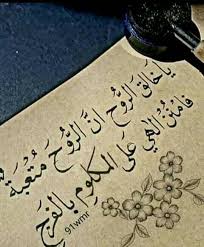 يا خالقَ الرّوح انَّ الرُّوحَ مُتعبَة
فامنُن الهي على المكلوم بالفرج
91wmr